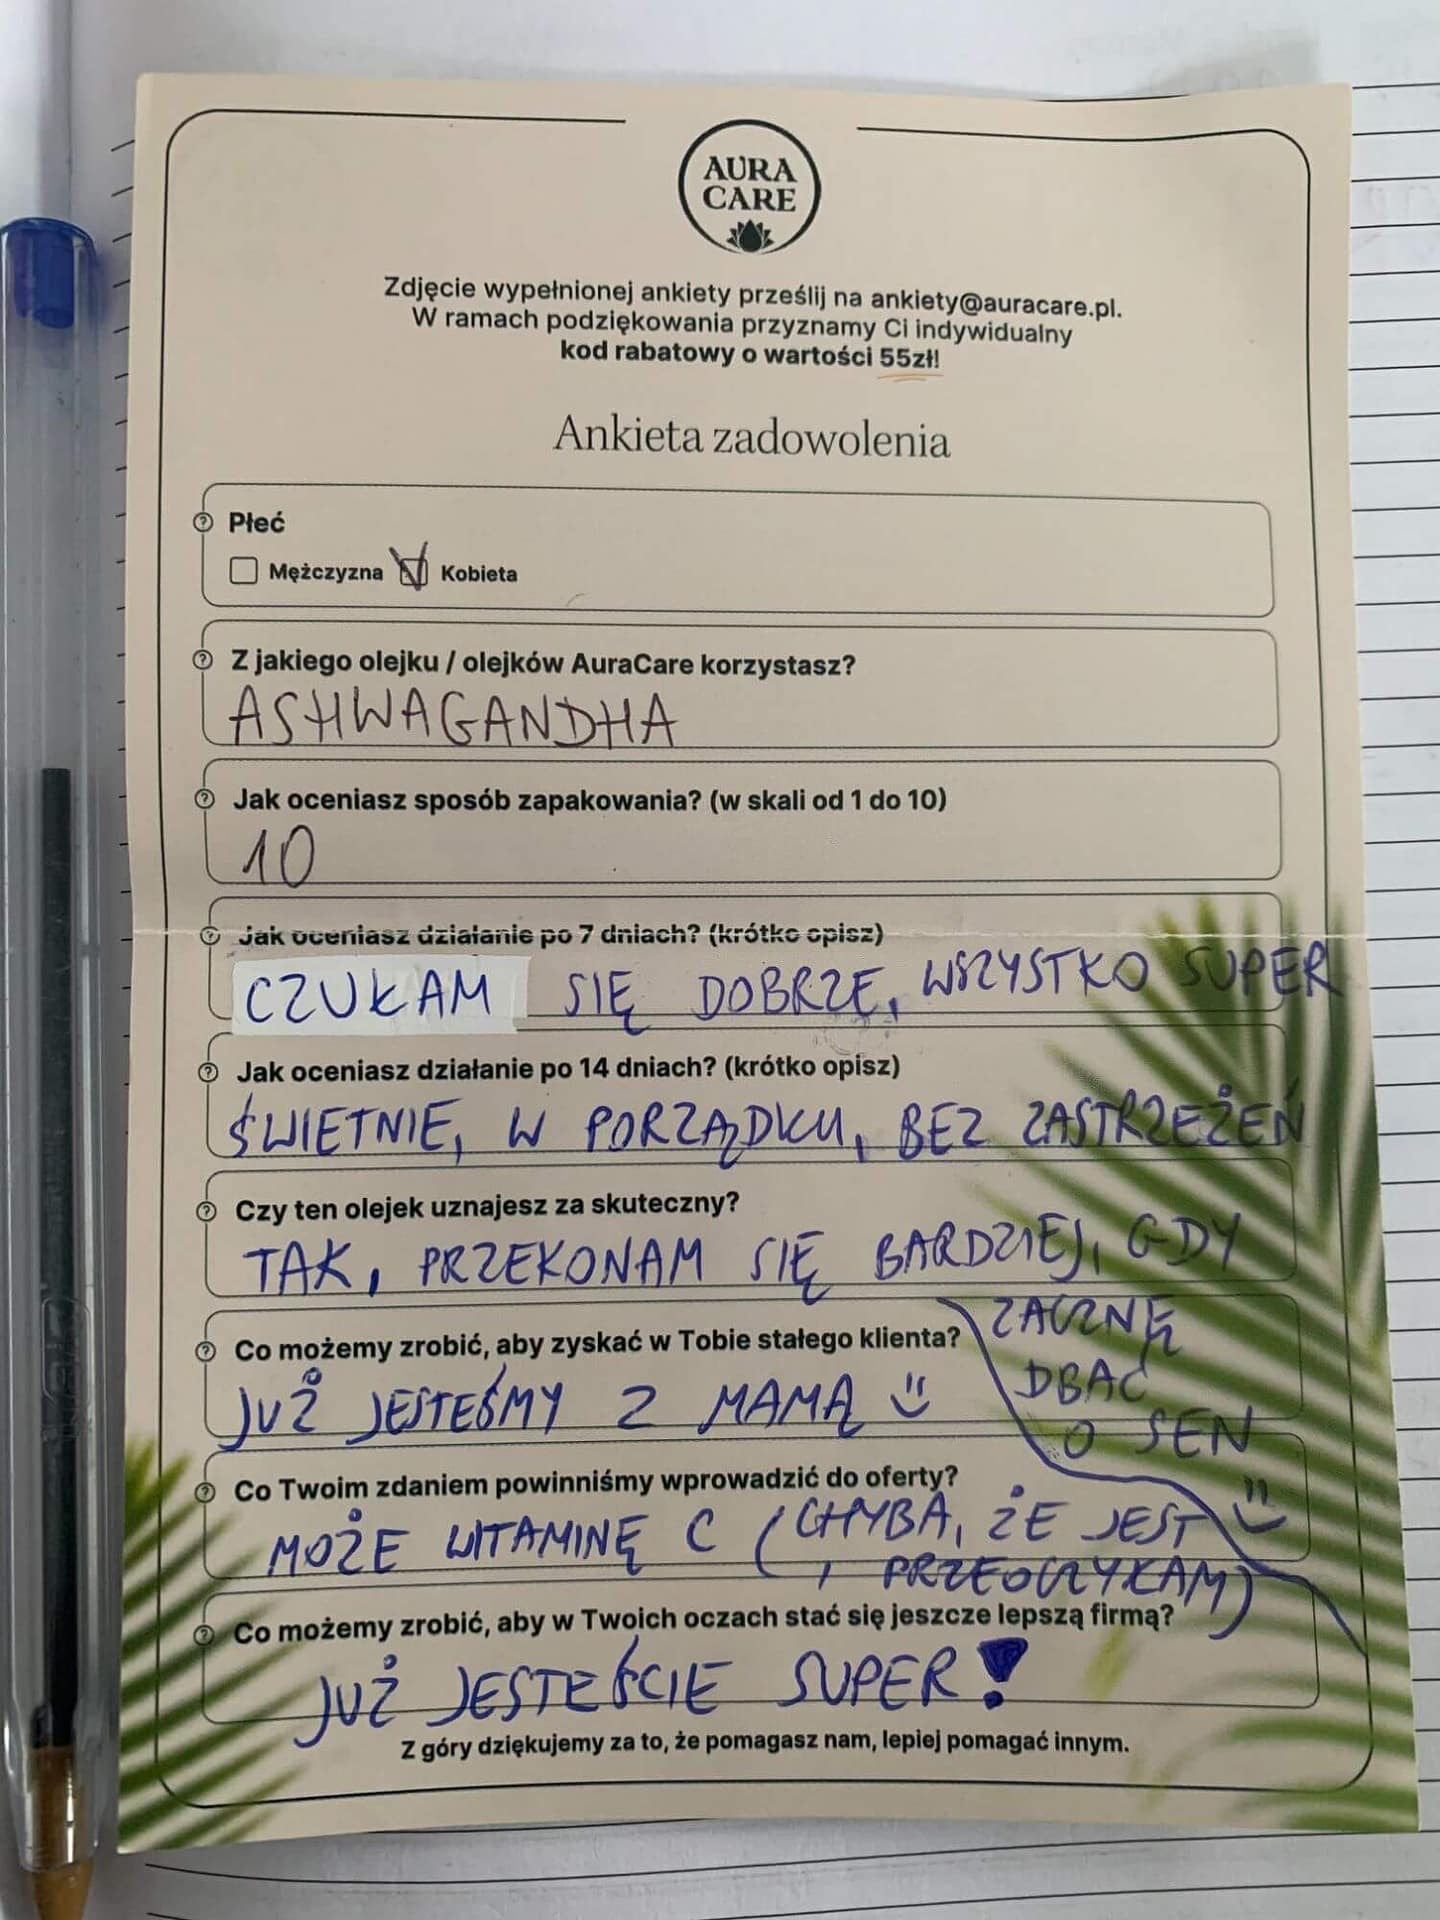 AURA
CARE
Zdjęcie wypełnionej ankiety prześlij na ankiety@auracare.pl.
W ramach podziękowania przyznamy Ci indywidualny
kod rabatowy o wartości 55zł!
Ankieta zadowolenia
Płeć
Mężczyzna Kobieta
Z jakiego olejku / olejków AuraCare korzystasz?
ASHWAGANDHA
Jak oceniasz sposób zapakowania? (w skali od 1 do 10)
10
Jak oceniasz działanie po 7 dniach? (krótko opisz)
CZUŁAM SIĘ DOBRZE, WSZYSTKO SUPER
Jak oceniasz działanie po 14 dniach? (krótko opisz)
ŚWIETNIE, W PORZĄDKU, BEZ ZASTRZEŻEŃ
Czy ten olejek uznajesz za skuteczny?
TAK, PRZEKONAM SIĘ BARDZIEJ, GDY
ZACZNĘ
DBAĆ
O SEN
Co możemy zrobić, aby zyskać w Tobie stałego klienta?
JUŻ JESTEŚMY Z MAMĄ
Co Twoim zdaniem powinniśmy wprowadzić do oferty?
MOŻE WITAMINĘ C (CHYBA, ŻE JEST
I PRZEOCZYŁAM)
Co możemy zrobić, aby w Twoich oczach stać się jeszcze lepszą firmą?
JUŻ JESTEŚCIE SUPER!
Z góry dziękujemy za to, że pomagasz nam, lepiej pomagać innym.